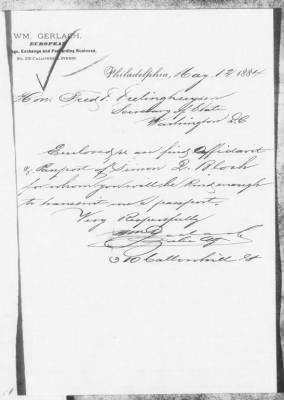 WM. GERLACH,
EUROPEAN
Exchange and Forwarding Business,
Philadelphia, May 12 1884
Hon. Fred T. Frelinghuysen
Secretary of State
Washington D.C
Enclosed you find Affidavit
of Passport of Simon L. Bloch
for whom you will be kind enough
to transmit me a passport.
Very Respectfully
310 Callowhill St